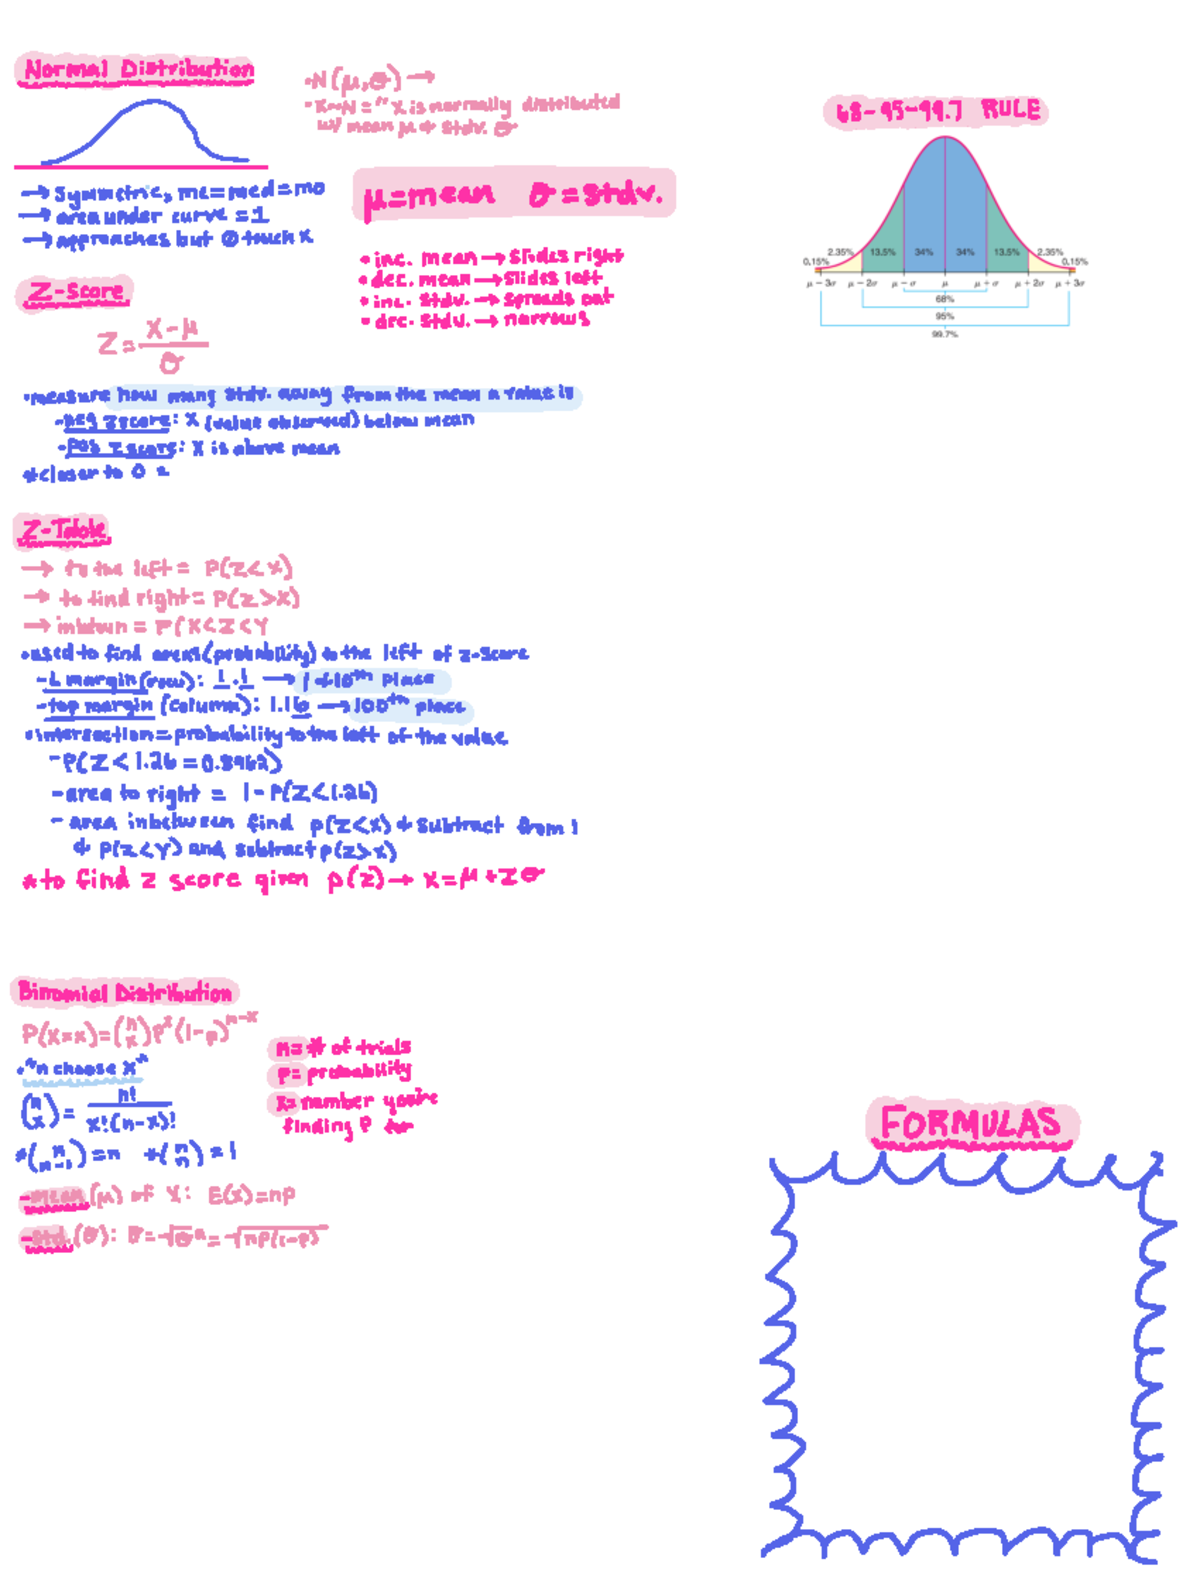 Normal Distribution
•N(μ,σ) →
•X~N = "X is normally distributed
w/ mean μ & stdv. σ
→ Symmetric, me=med=mo
→ area under curve = 1
→ approaches but ∅ touch x
μ=mean σ=stdv.
• inc. mean → slides right
• dec. mean → slides left
• inc. stdv. → spreads out
• dec. stdv. → narrows
68-95-99.7 RULE
2.35% 13.5% 34% 34% 13.5% 2.35%
0.15% 0.15%
μ − 3σ μ − 2σ μ − σ μ μ + σ μ + 2σ μ + 3σ
68%
95%
99.7%
Z-Score
Z = (X-μ)/σ
•measure how many stdv. away from the mean a value is
-neg zscore: X (value observed) below mean
-pos zscore: X is above mean
*closer to 0 =
Z-Table
→ to the left = P(Z<X)
→ to find right = P(Z>X)
→ inbtwn = P(X<Z<Y
•used to find areas (probability) to the left of z-score
-L margin (row): 1.1 → 1 & 10th place
-top margin (column): 1.16 → 100th place
•intersection = probability to the left of the value
-P(Z<1.26=0.8962)
-area to right = 1-P(Z<1.26)
- area inbetween find p(z<x) & subtract from 1
& p(z<Y) and subtract p(z>x)
*to find z score given p(z) → x=μ+zσ
Binomial Distribution
P(X=x)=(n x)p^x(1-p)^n-x
•"n choose X"
(n x) = n!/x!(n-x)!
*(n n-1)=n *(n n)=1
n= # of trials
p= probability
x= number you're
finding P for
-mean (μ) of X: E(x)=np
-Std. (σ): σ=√σ²=√np(1-p)
FORMULAS